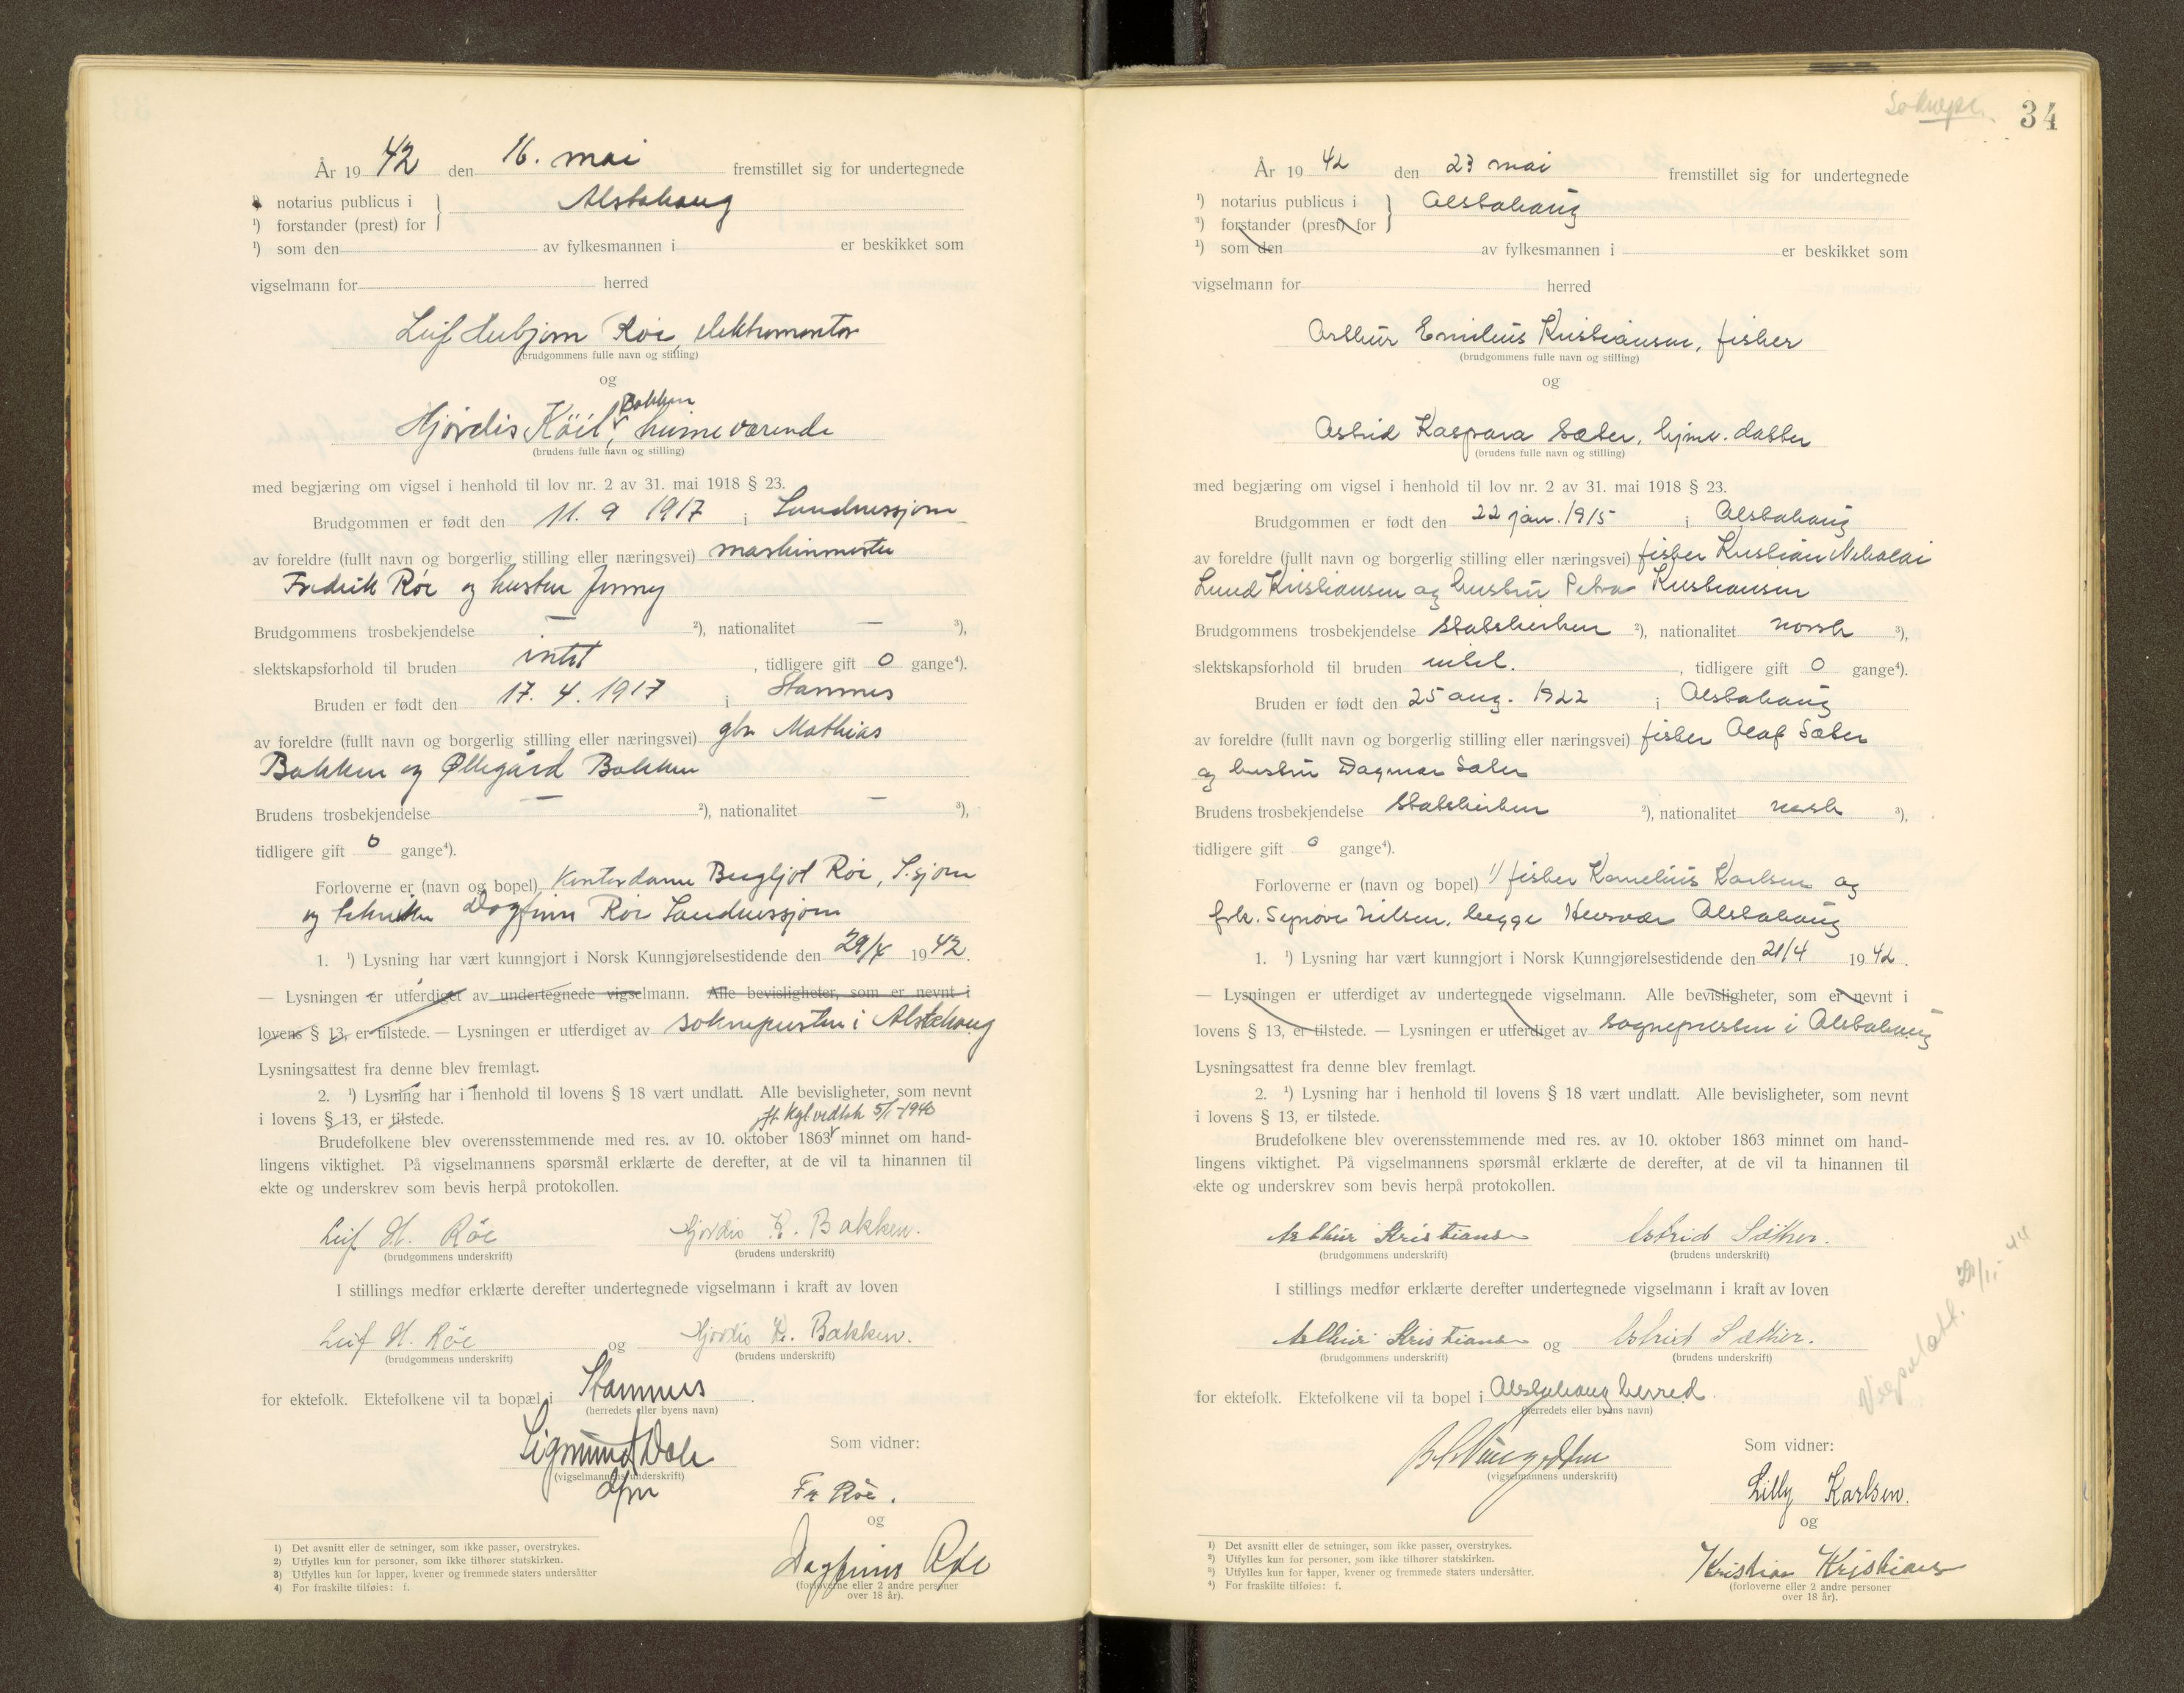 År 19 42 den 16. mai fremstillet sig for undertegnede
¹) notarius publicus i
Alstahaug
¹) forstander (prest) for
¹) som den av fylkesmannen i er beskikket som
vigselmann for herred
Leif Røe, elektromontør
(brudgommens fulle navn og stilling)
og
Bakken
Hjørdis, heimeværende
(brudens fulle navn og stilling)
med begjæring om vigsel i henhold til lov nr. 2 av 31. mai 1918 § 23.
Brudgommen er født den 11. 9 1917 i Sandnessjøen
av foreldre (fullt navn og borgerlig stilling eller næringsvei) maskinmester
Fredrik Røe og hustru Jenny
Brudgommens trosbekjendelse — ²), nationalitet — ³),
slektskapsforhold til bruden intet, tidligere gift 0 gange⁴).
Bruden er født den 17. 4. 1917 i Stamnes
av foreldre (fullt navn og borgerlig stilling eller næringsvei) gbr Mathias
Bakken og Øllegård Bakken
Brudens trosbekjendelse — ²), nationalitet — ³),
tidligere gift 0 gange⁴).
Forloverne er (navn og bopel) Kontordame Bergljot Røe, S.sjøen
og tekniker Dagfinn Røe Sandnessjøen
1. ¹) Lysning har vært kunngjort i Norsk Kunngjørelsestidende den 29/4 1942.
— Lysningen er utferdiget av undertegnede vigselmann. Alle bevisligheter, som er nevnt i
lovens § 13, er tilstede. — Lysningen er utferdiget av soknepresten i Alstahaug
Lysningsattest fra denne blev fremlagt.
2. ¹) Lysning har i henhold til lovens § 18 vært undlatt. Alle bevisligheter, som nevnt
i lovens § 13, er tilstede.
jfr. kgl vedtak 5/1-1940
Brudefolkene blev overensstemmende med res. av 10. oktober 1863 minnet om hand-
lingens viktighet. På vigselmannens spørsmål erklærte de derefter, at de vil ta hinannen til
ekte og underskrev som bevis herpå protokollen.
Leif H. Røe Hjørdis K. Bakken.
(brudgommens underskrift) (brudens underskrift)
I stillings medfør erklærte derefter undertegnede vigselmann i kraft av loven
Leif H. Røe og Hjørdis K. Bakken.
(brudgommens underskrift) (brudens underskrift)
for ektefolk. Ektefolkene vil ta bopæl i Stamnes.
(herredets eller byens navn)
Sigmund Dale
(vigselmannens underskrift)
Som vidner:
Fr Røe.
og
Dagfinn Røe
(forloverne eller 2 andre personer
over 18 år).
1) Det avsnitt eller de setninger, som ikke passer, overstrykes.
2) Utfylles kun for personer, som ikke tilhører statskirken.
3) Utfylles kun for lapper, kvener og fremmede staters undersåtter
4) For fraskilte tilføies: f.
Soknepr. 34
År 19 42 den 23 mai fremstillet sig for undertegnede
¹) notarius publicus i
Alstahaug
¹) forstander (prest) for
¹) som den av fylkesmannen i er beskikket som
vigselmann for herred
Arthur Emilius Kristiansen, fisker
(brudgommens fulle navn og stilling)
og
Astrid Kaspara Sæter, hjmv. datter
(brudens fulle navn og stilling)
med begjæring om vigsel i henhold til lov nr. 2 av 31. mai 1918 § 23.
Brudgommen er født den 22 jan. 1915 i Alstahaug
av foreldre (fullt navn og borgerlig stilling eller næringsvei) fisker Kristian Nikolai
Lund Kristiansen og hustru Petra Kristiansen
Brudgommens trosbekjendelse statskirken ²), nationalitet norsk ³),
slektskapsforhold til bruden intet., tidligere gift 0 gange⁴).
Bruden er født den 25 aug. 1922 i Alstahaug
av foreldre (fullt navn og borgerlig stilling eller næringsvei) fisker Olaf Sæter
og hustru Dagmar Sæter
Brudens trosbekjendelse statskirken ²), nationalitet norsk ³),
tidligere gift 0 gange⁴).
Forloverne er (navn og bopel) 1/ fisker Kornelius Karlsen og
frk. Synøve Nilsen, begge Husvær Alstahaug
1. ¹) Lysning har vært kunngjort i Norsk Kunngjørelsestidende den 21/4 1942.
— Lysningen er utferdiget av undertegnede vigselmann. Alle bevisligheter, som er nevnt i
lovens § 13, er tilstede. — Lysningen er utferdiget av sognepresten i Alstahaug
Lysningsattest fra denne blev fremlagt.
2. ¹) Lysning har i henhold til lovens § 18 vært undlatt. Alle bevisligheter, som nevnt
i lovens § 13, er tilstede.
Brudefolkene blev overensstemmende med res. av 10. oktober 1863 minnet om hand-
lingens viktighet. På vigselmannens spørsmål erklærte de derefter, at de vil ta hinannen til
ekte og underskrev som bevis herpå protokollen.
Arthur Kristiansen Astrid Sæther.
(brudgommens underskrift) (brudens underskrift)
I stillings medfør erklærte derefter undertegnede vigselmann i kraft av loven
Arthur Kristiansen og Astrid Sæther.
(brudgommens underskrift) (brudens underskrift)
for ektefolk. Ektefolkene vil ta bopel i Alstahaug herred.
(herredets eller byens navn)
(vigselmannens underskrift)
Som vidner:
Lilly Karlsen.
og
Kristian Kristians
(forloverne eller 2 andre personer
over 18 år).
¹) Det avsnitt eller de setninger, som ikke passer, overstrykes.
²) Utfylles kun for personer, som ikke tilhører statskirken.
³) Utfylles kun for lapper, kvener og fremmede staters undersåtter.
⁴) For fraskilte tilføies: f.